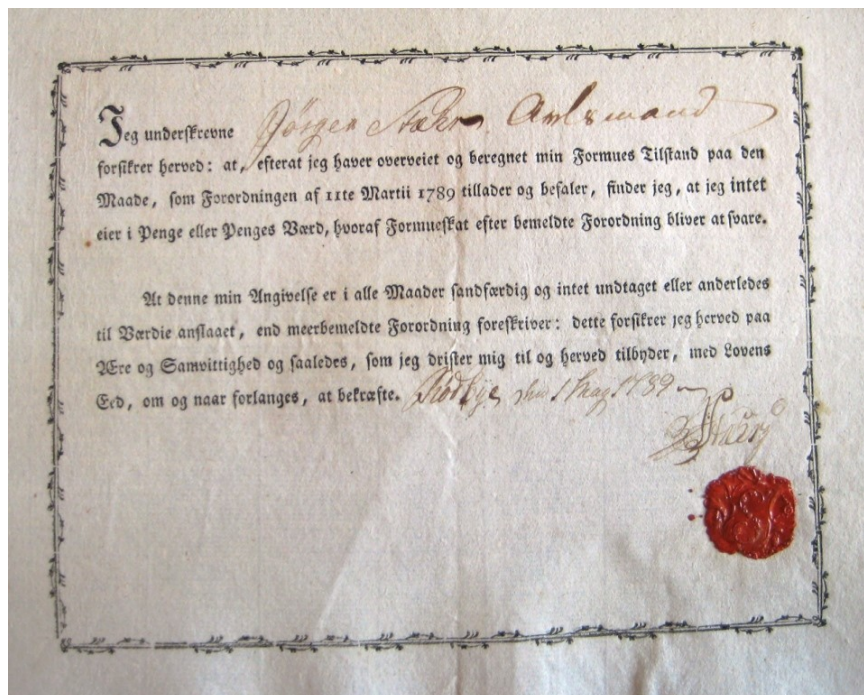 Jeg underskrevne Jörgen Stæhr Avlsmand
forsikrer herved: at, efterat jeg haver overveiet og beregnet min Formues Tilstand paa den
Maade, som Forordningen af 11te Martii 1789 tillader og befaler, finder jeg, at jeg intet
eier i Penge eller Penges Værd, hvoraf Formueskat efter bemeldte Forordning bliver at svare.
At denne min Angivelse er i alle Maader sandfærdig og intet undtaget eller anderledes
til Værdie anslaaet, end meerbemeldte Forordning foreskriver: dette forsikrer jeg herved paa
Ære og Samvittighed og saaledes, som jeg drister mig til og herved tilbyder, med Lovens
Eed, om og naar forlanges, at bekræfte. Rödbye den 1 May 1789